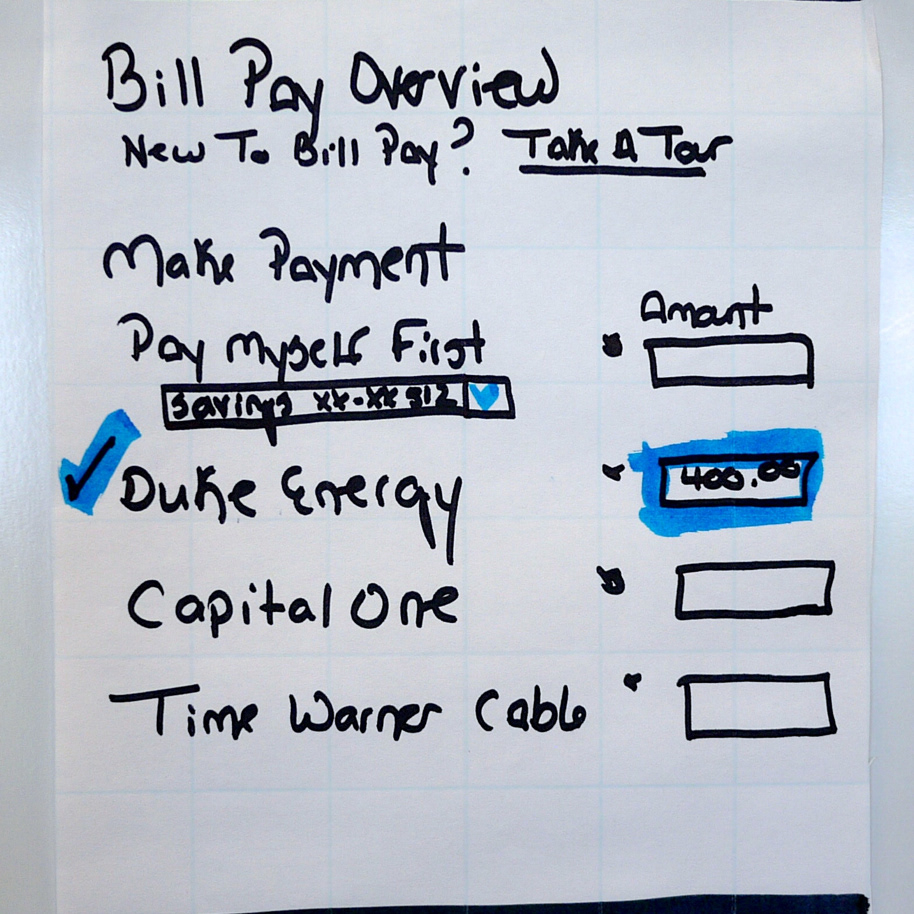 Bill Pay Overview
New To Bill Pay? Take A Tour
Make Payment
Amount
Pay Myself First
Savings xx-xx 912
Duke Energy 400.00
Capital One
Time Warner Cable